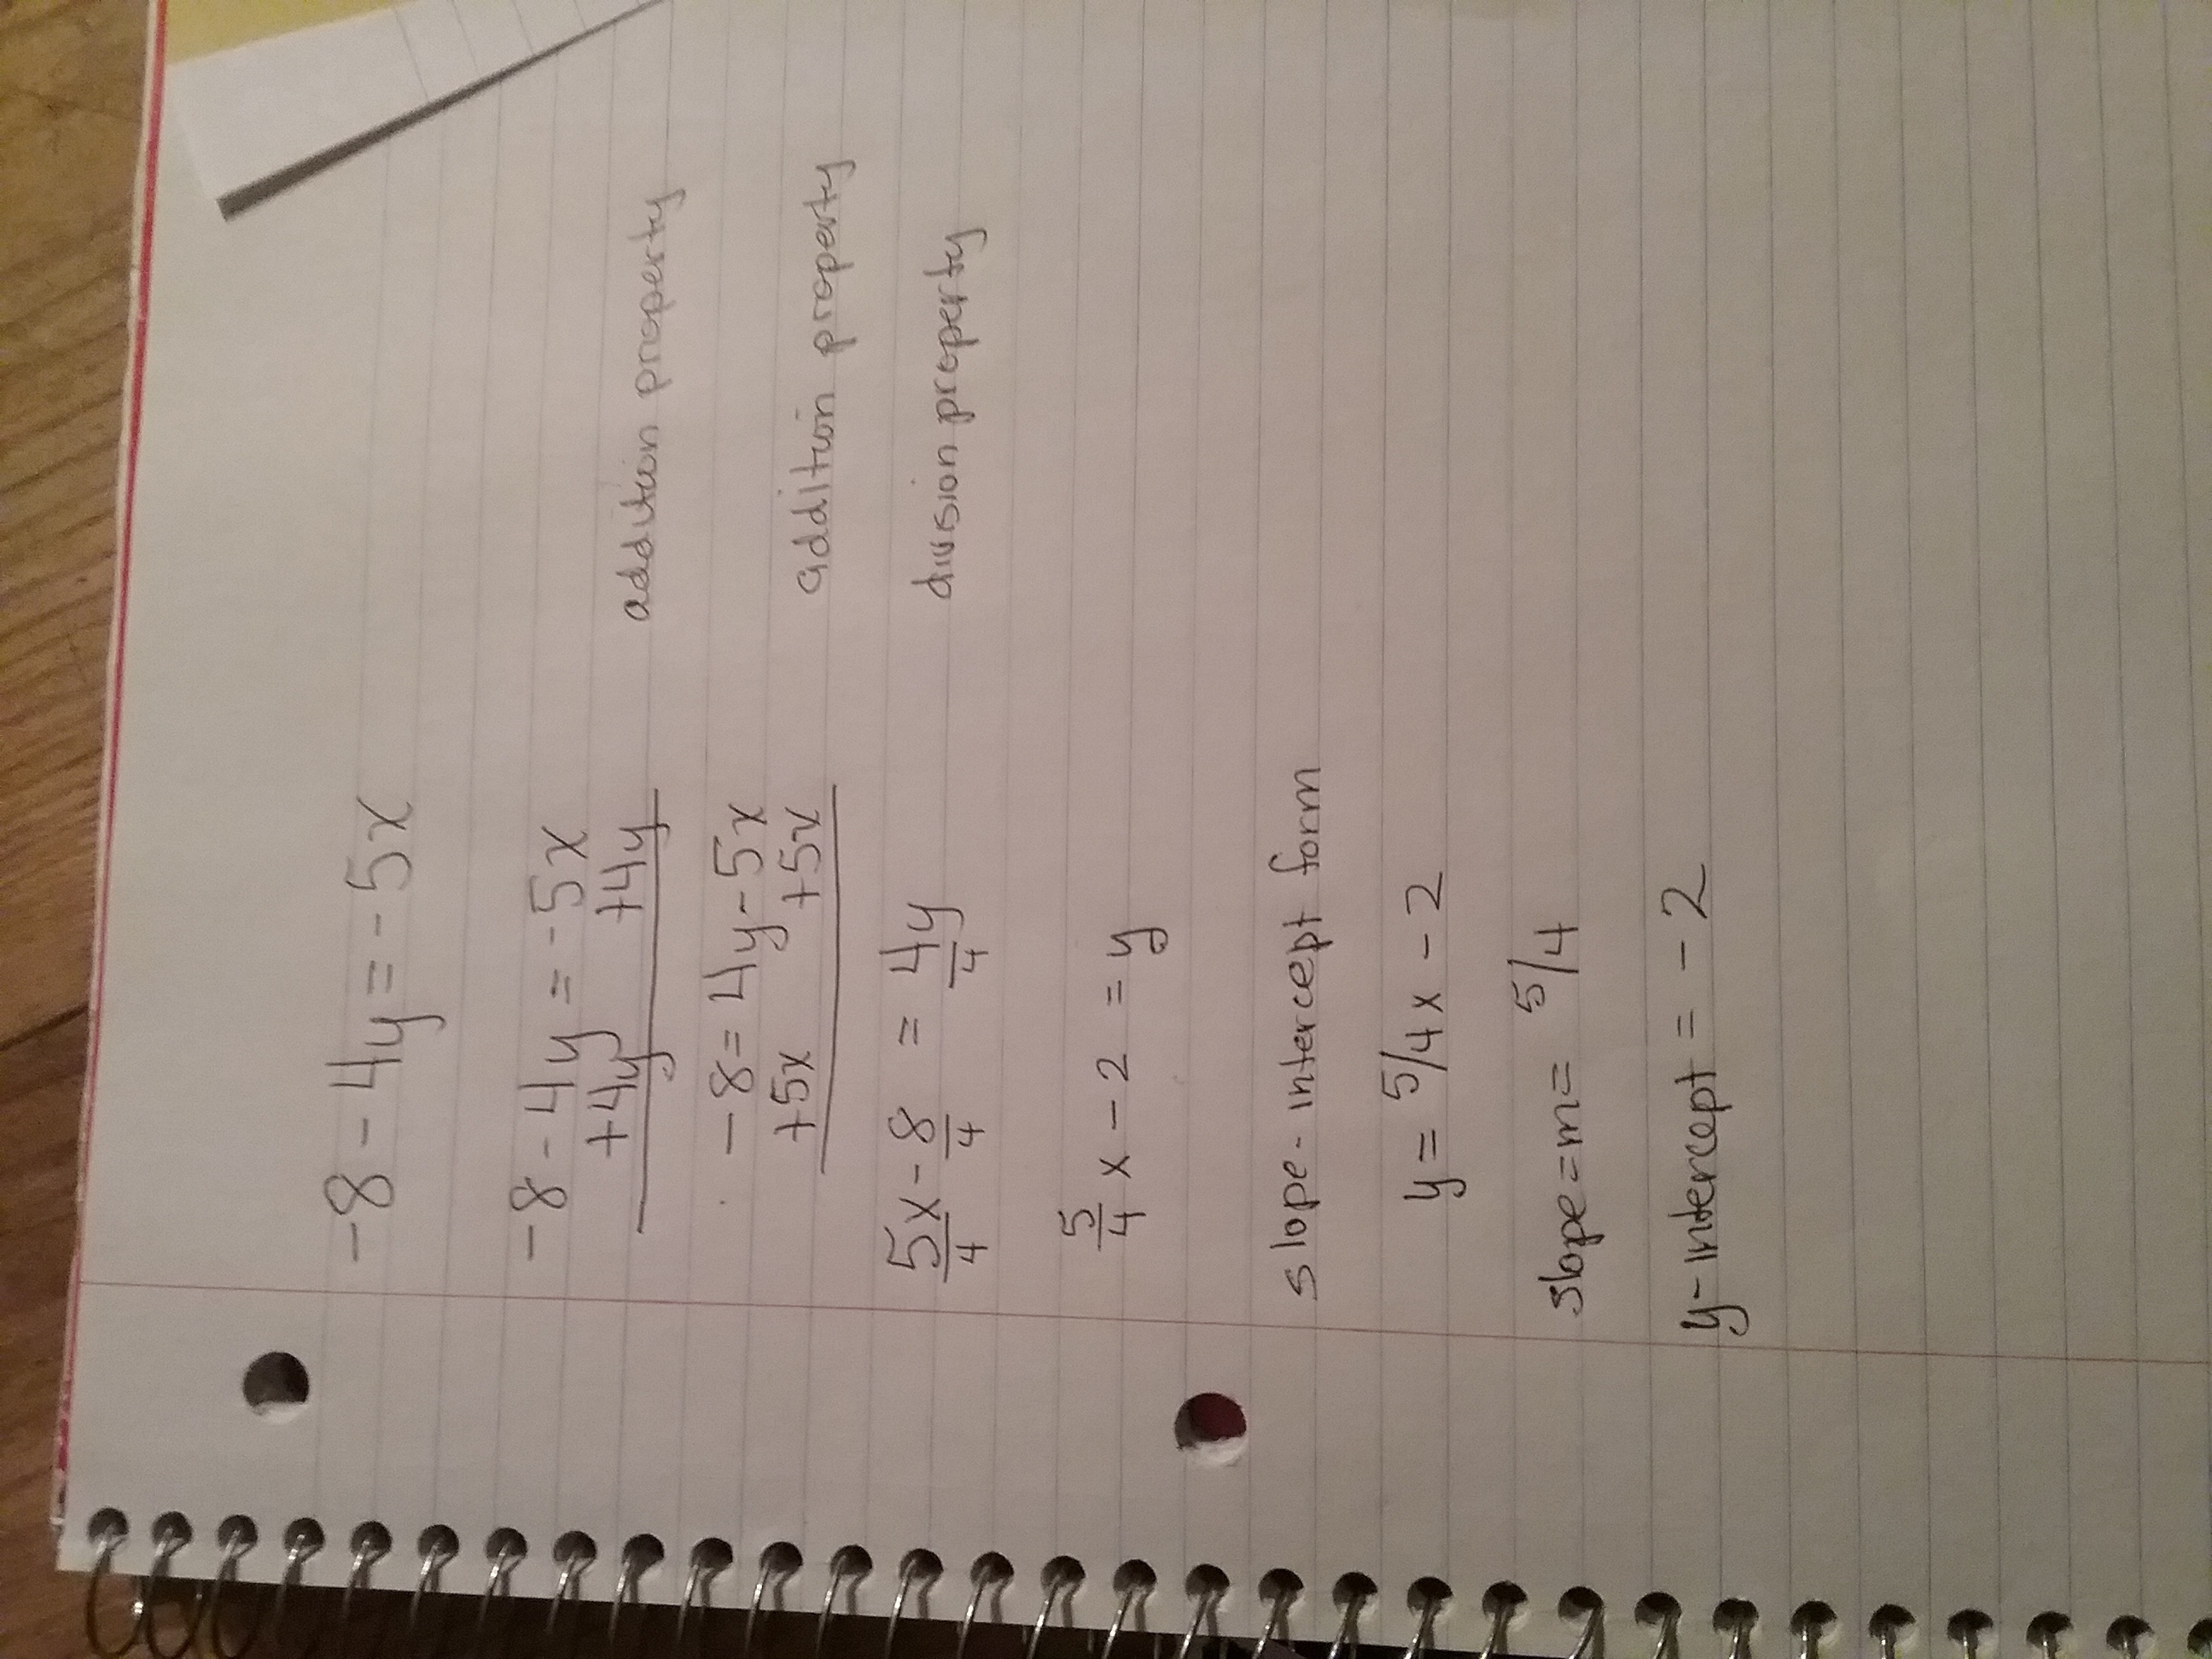 -8 - 4y = -5x
-8 - 4y = -5x
+4y +4y addition property
-8 = 4y - 5x
+5x +5x addition property
5x/4 - 8/4 = 4y/4 division property
5/4 x - 2 = y
slope-intercept form
y = 5/4 x - 2
slope = m = 5/4
y-intercept = -2